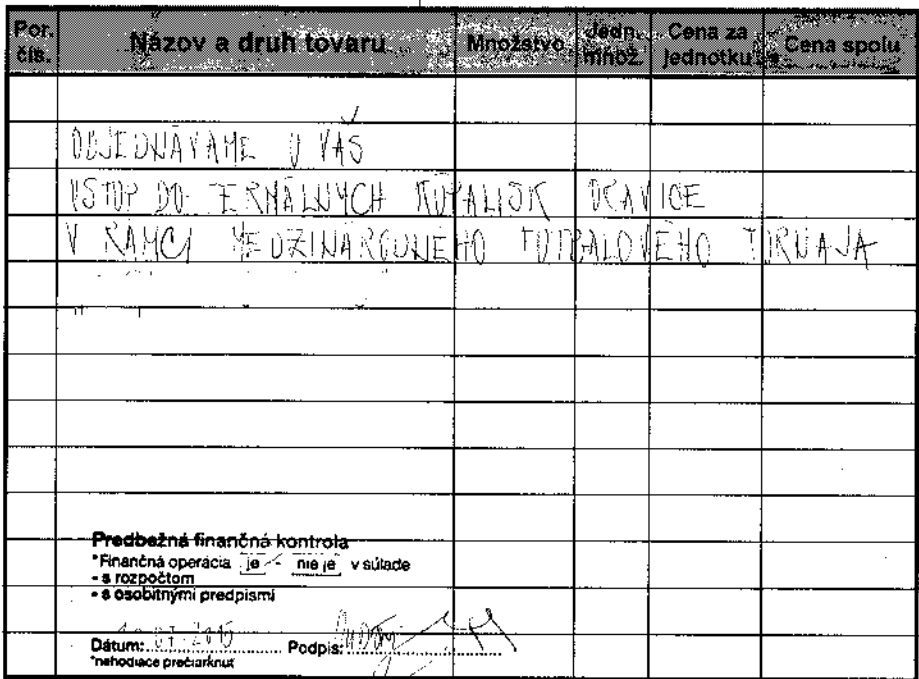 Por. čís. Názov a druh tovaru Množstvo Jedn. množ. Cena za jednotku Cena spolu
OBJEDNÁVAME U VÁS
VSTUP DO TERMÁLNYCH KÚPALISK ORAVICE
V RÁMCI MEDZINÁRODNÉHO FUTBALOVÉHO TURNAJA
Predbežná finančná kontrola
*Finančná operácia je - nie je v súlade
- s rozpočtom
- s osobitnými predpismi
Dátum: 07 2015 Podpis:
*nehodiace prečiarknuť